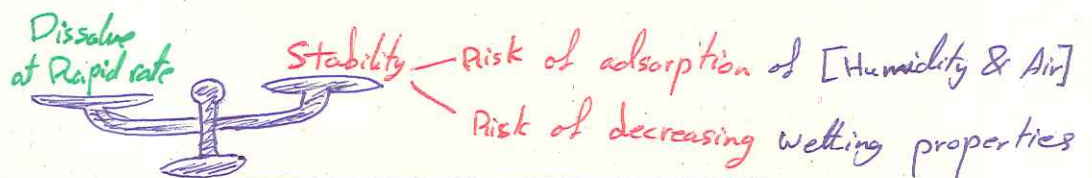 Dissolve
at Rapid rate
Stability
Risk of adsorption of [Humidity & Air]
Risk of decreasing wetting properties